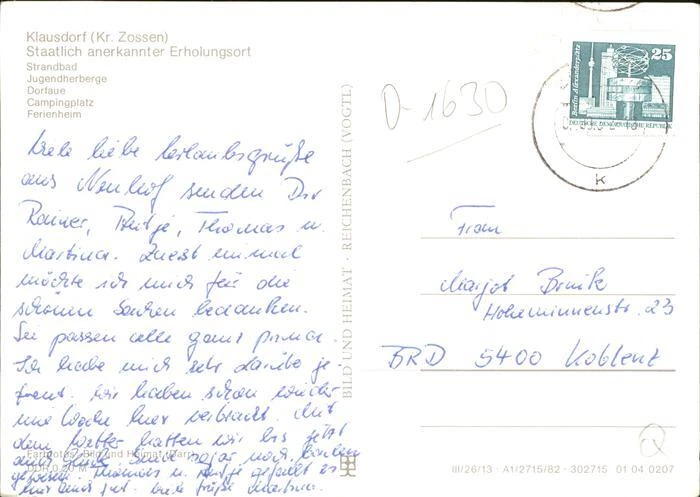 Klausdorf (Kr. Zossen)
Staatlich anerkannter Erholungsort
Strandbad
Jugendherberge
Dorfaue
Campingplatz
Ferienheim
Viele liebe Urlaubsgrüße
aus Neuhof senden Dir
Rainer, Antje, Thomas u.
Martina. Zuerst einmal
möchte ich mich für die
schönen Sachen bedanken.
Sie passen alle ganz prima.
Ich habe mich sehr darüber ge-
freut. Wir haben schon wieder
eine Woche hier verbracht. Mit
dem Wetter hatten wir bis jetzt
auch Glück. Sind sogar noch baden
gewesen. Thomas u. Antje gefällt es
hier ganz gut. Viele Grüße Martina.
Farbfotos: Bild und Heimat
DDR 0,20 M
BILD UND HEIMAT · REICHENBACH (VOGTL)
D-1630
Berlin, Alexanderplatz
25
DEUTSCHE DEMOKRATISCHE REPUBLIK
k
Frau
Margot
Hohenzollernstr. 23
BRD 5400 Koblenz
III/26/13 · A1/2715/82 · 302715 01 04 0207